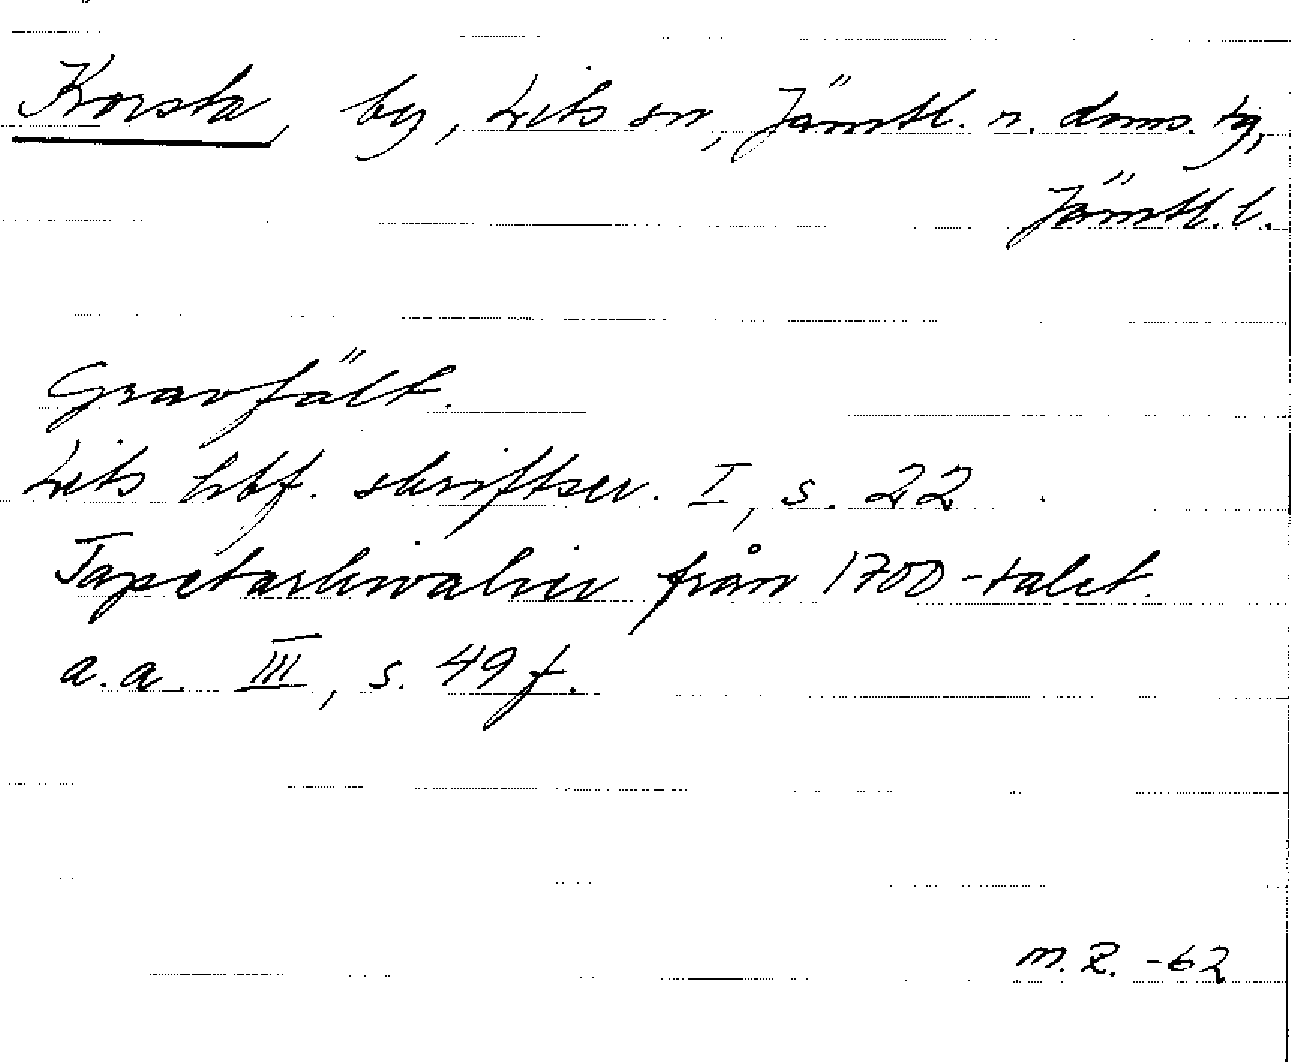 Korsta, by, Lits sn, Jämtl. n. doms. tg,
Jämtl. l.
Gravfält.
Lits hbf. skriftser. I, s. 22
Tapetarkivalier från 1700-talet.
a.a. III, s. 49 f.
M.R. -62